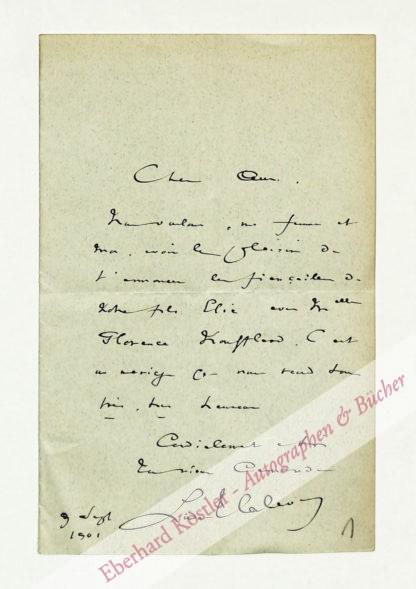 Cher
Nous voulons, ma femme et
moi, avoir le plaisir de
t'annoncer les fiançailles de
notre fils Elie avec Mlle
Florence Noufflard. C'est
un mariage qui nous rend tous
très, très heureux
Cordialement à toi
Ton vieux Camarade
Lud Halévy
9 Sept
1901
1
Eberhard Köstler - Autographen & Bücher